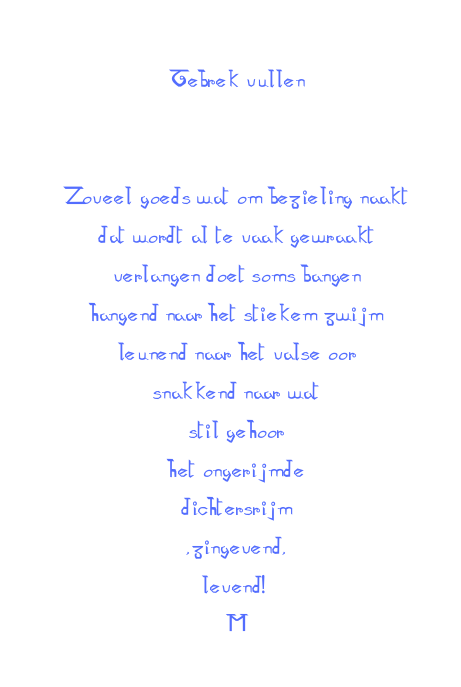 Gebrek vullen
Zoveel goeds wat om bezieling naakt
dat wordt al te vaak gewraakt
verlangen doet soms bangen
hangend naar het stiekem zwijm
leunend naar het valse oor
snakkend naar wat
stil gehoor
het ongerijmde
dichtersrijm
,zingevend,
levend!
M